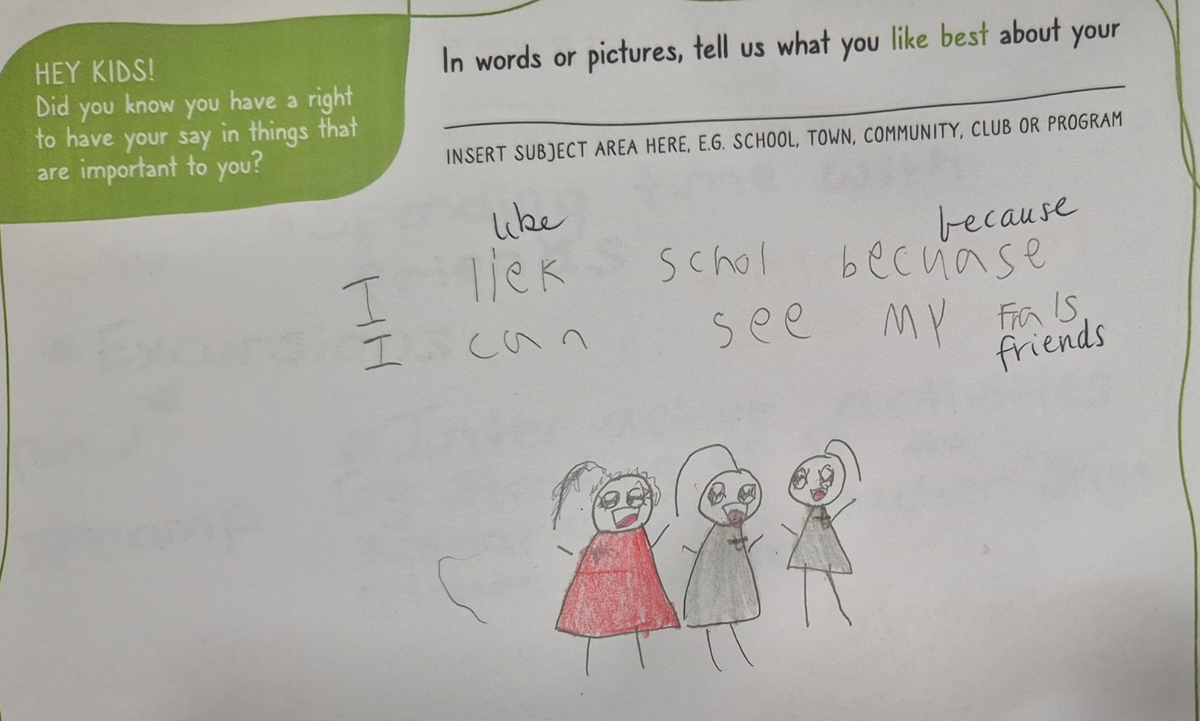 HEY KIDS!
Did you know you have a right
to have your say in things that
are important to you?
In words or pictures, tell us what you like best about your
INSERT SUBJECT AREA HERE, E.G. SCHOOL, TOWN, COMMUNITY, CLUB OR PROGRAM
like because
I liek schol becuase
I can see my Frals
friends